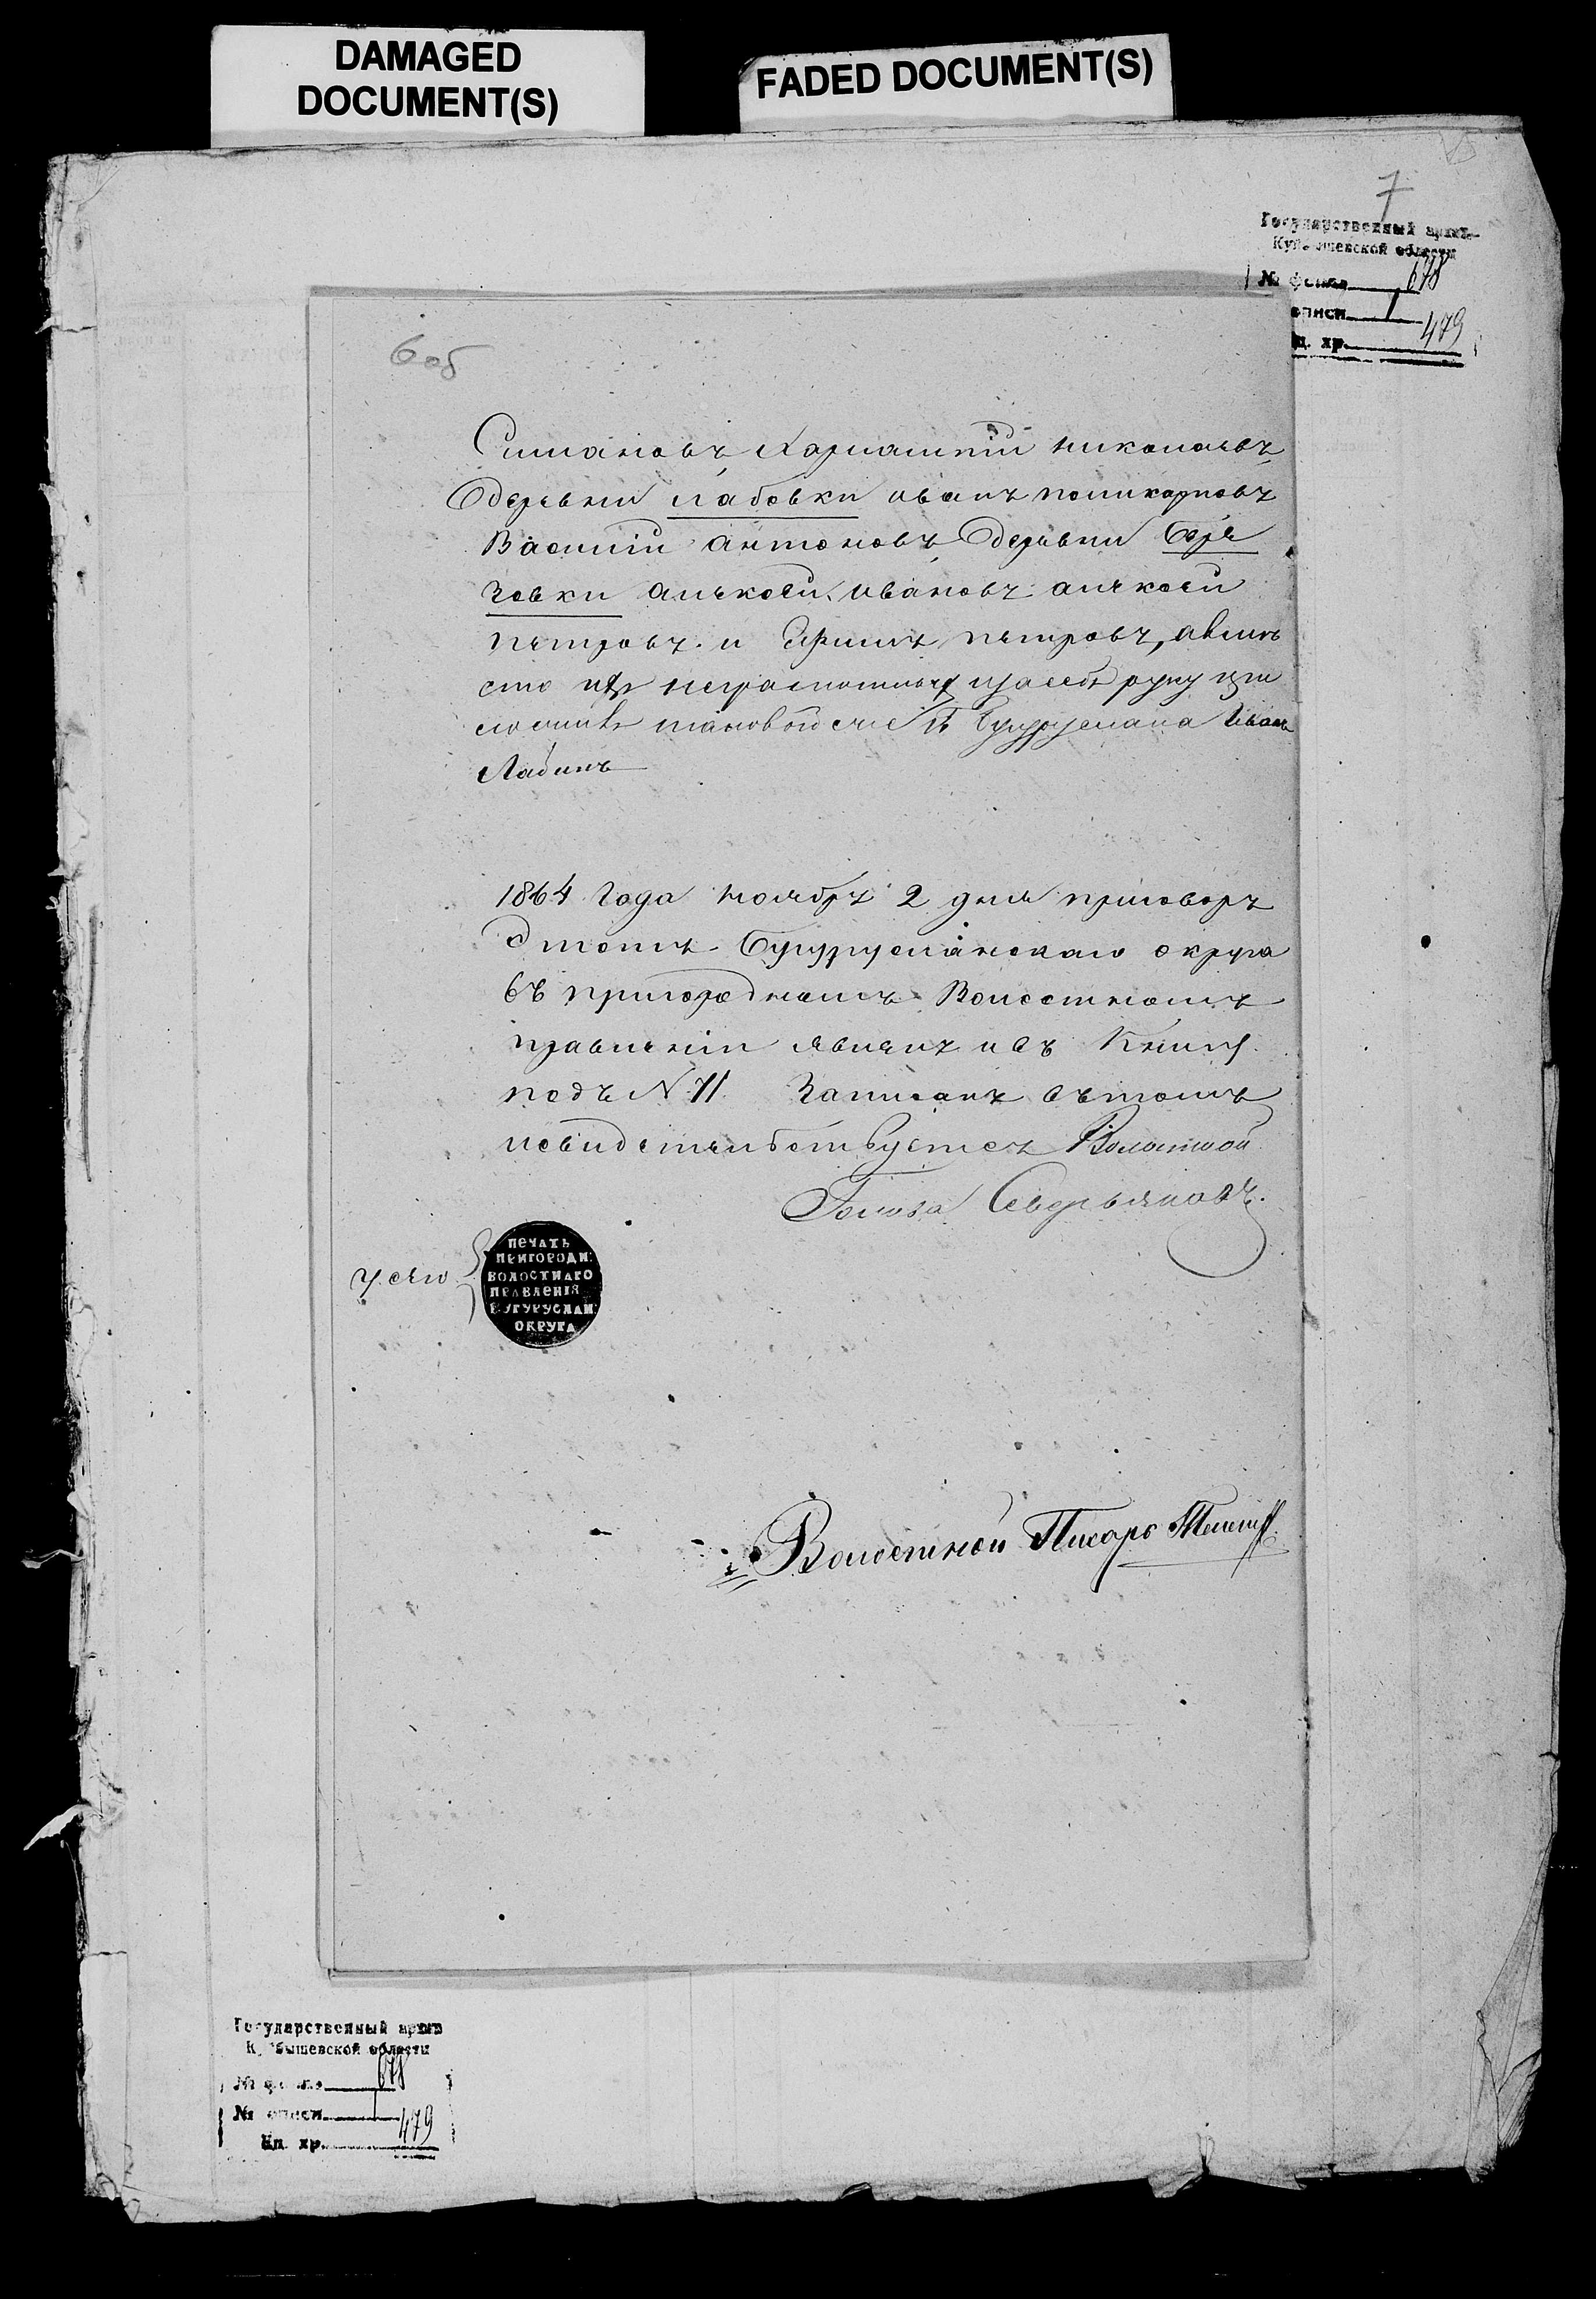 DAMAGED
DOCUMENT(S)
FADED DOCUMENT(S)
7
Государственный архив
Куйбышевской области
№ фонда 678
описи 1
ед. хр. 479
6 об
Симановъ Харлампiй николаевъ
деревни лабовки иванъ поликарповъ
Василiй антоновъ деревни Бере
зовки алексей ивановъ алексей
петровъ. и Ефимъ петровъ, авмъ
сто ихъ неграмотныхъ руку
Бугуруслана Иванъ
Лабинъ
1864 Года ноябръ 2 дня приговоръ
этотъ Бугурусланскаго округа
въ пригородномъ Волостномъ
правленiи явленъ и въ Книгу
подъ N. 71 Записанъ въ томъ
и свидетельствуетсъ Волостной
Голова Северьяновъ.
У сего
ПЕЧАТЬ
ПРИГОРОДН:
ВОЛОСТНАГО
ПРАВЛЕНIЯ
БУГУРУСЛАН:
ОКРУГА
Волостной Писарь
Государственный архив
Куйбышевской области
№ фонда 678
№ описи 1
Ед. хр. 479